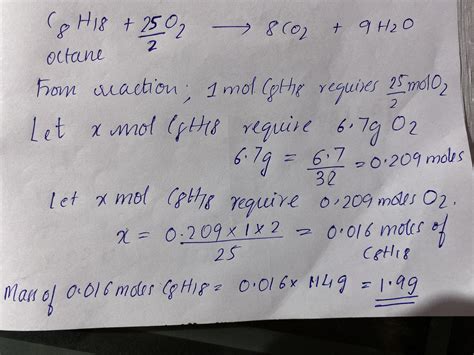 C8H18 + 25/2 O2 ⟶ 8CO2 + 9H2O
octane
From reaction; 1 mol C8H18 requires 25/2 mol O2
Let x mol C8H18 require 6.7g O2
6.7g = 6.7/32 = 0.209 moles
Let x mol C8H18 require 0.209 moles O2.
x = 0.209×1×2/25 = 0.016 moles of C8H18
Mass of 0.016 moles C8H18 = 0.016× 114g = 1.9g